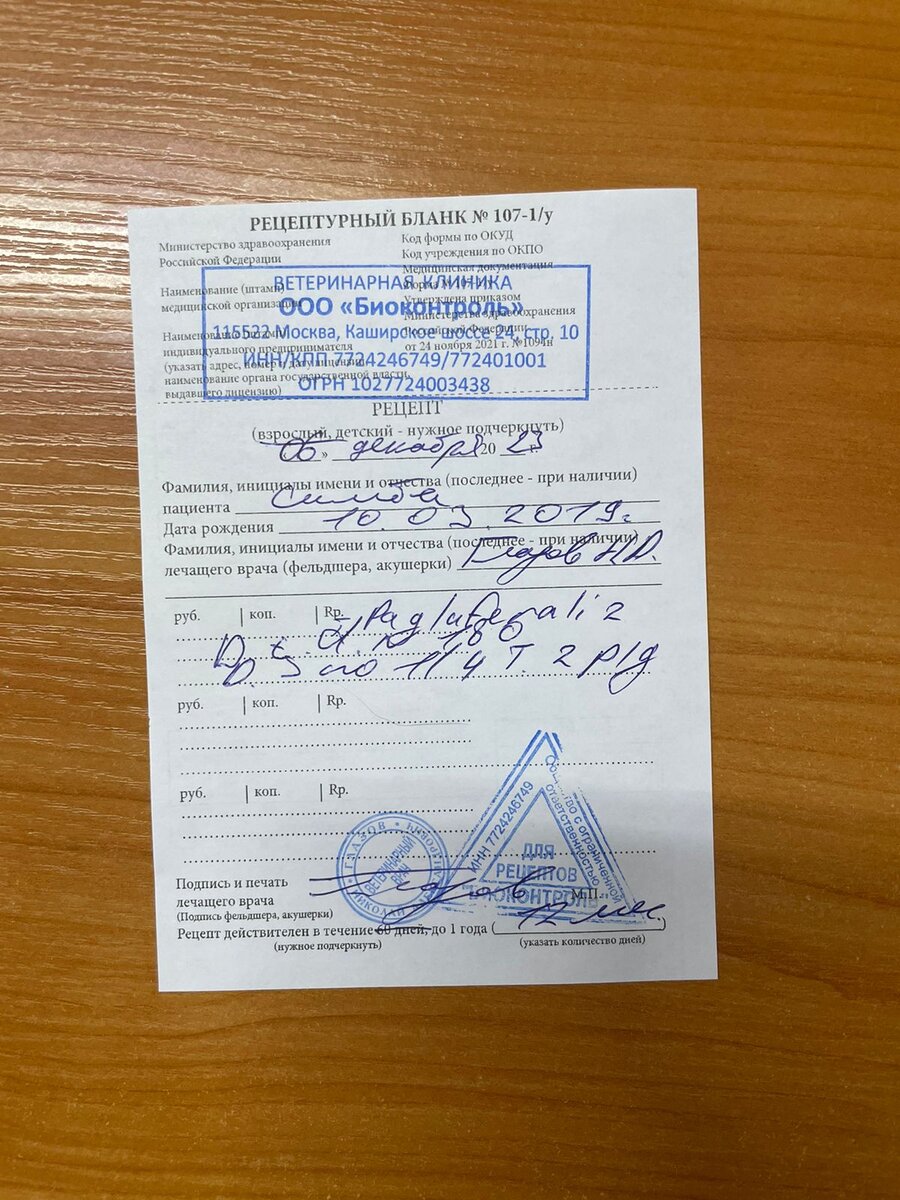 РЕЦЕПТУРНЫЙ БЛАНК № 107-1/у
Министерство здравоохранения
Российской Федерации
Код формы по ОКУД
Код учреждения по ОКПО
Медицинская документация
Наименование (штамп)
медицинской организации
Утверждена приказом
Министерства здравоохранения
Российской Федерации
от 24 ноября 2021 г. №1094н
Наименование (штамп)
индивидуального предпринимателя
(указать адрес, номер и дату лицензии,
наименование органа государственной власти,
выдавшего лицензию)
ВЕТЕРИНАРНАЯ КЛИНИКА
ООО «Биоконтроль»
115522 Москва, Каширское шоссе 24, стр. 10
ИНН/КПП 7724246749/772401001
ОГРН 1027724003438
РЕЦЕПТ
(взрослый, детский - нужное подчеркнуть)
06 » декабря 20 23
Фамилия, инициалы имени и отчества (последнее - при наличии)
пациента Симба
Дата рождения 10.03.2019г
Фамилия, инициалы имени и отчества (последнее - при наличии)
лечащего врача (фельдшера, акушерки)
руб. коп. Rp.
D. t. d. N 180
D. S по 1/4 т. 2 р/д
руб. коп. Rp.
руб. коп. Rp.
ГЛАЗОВ
НИКОЛАЙ
ВЕТЕРИНАРНЫЙ
ВРАЧ
ИНН 7724246749
Общество с ограниченной
ответственностью
ДЛЯ
РЕЦЕПТОВ
"БИОКОНТРОЛЬ"
Подпись и печать
лечащего врача
М.П.
(Подпись фельдшера, акушерки)
12 мес.
Рецепт действителен в течение 60 дней, до 1 года ( )
(нужное подчеркнуть)
(указать количество дней)